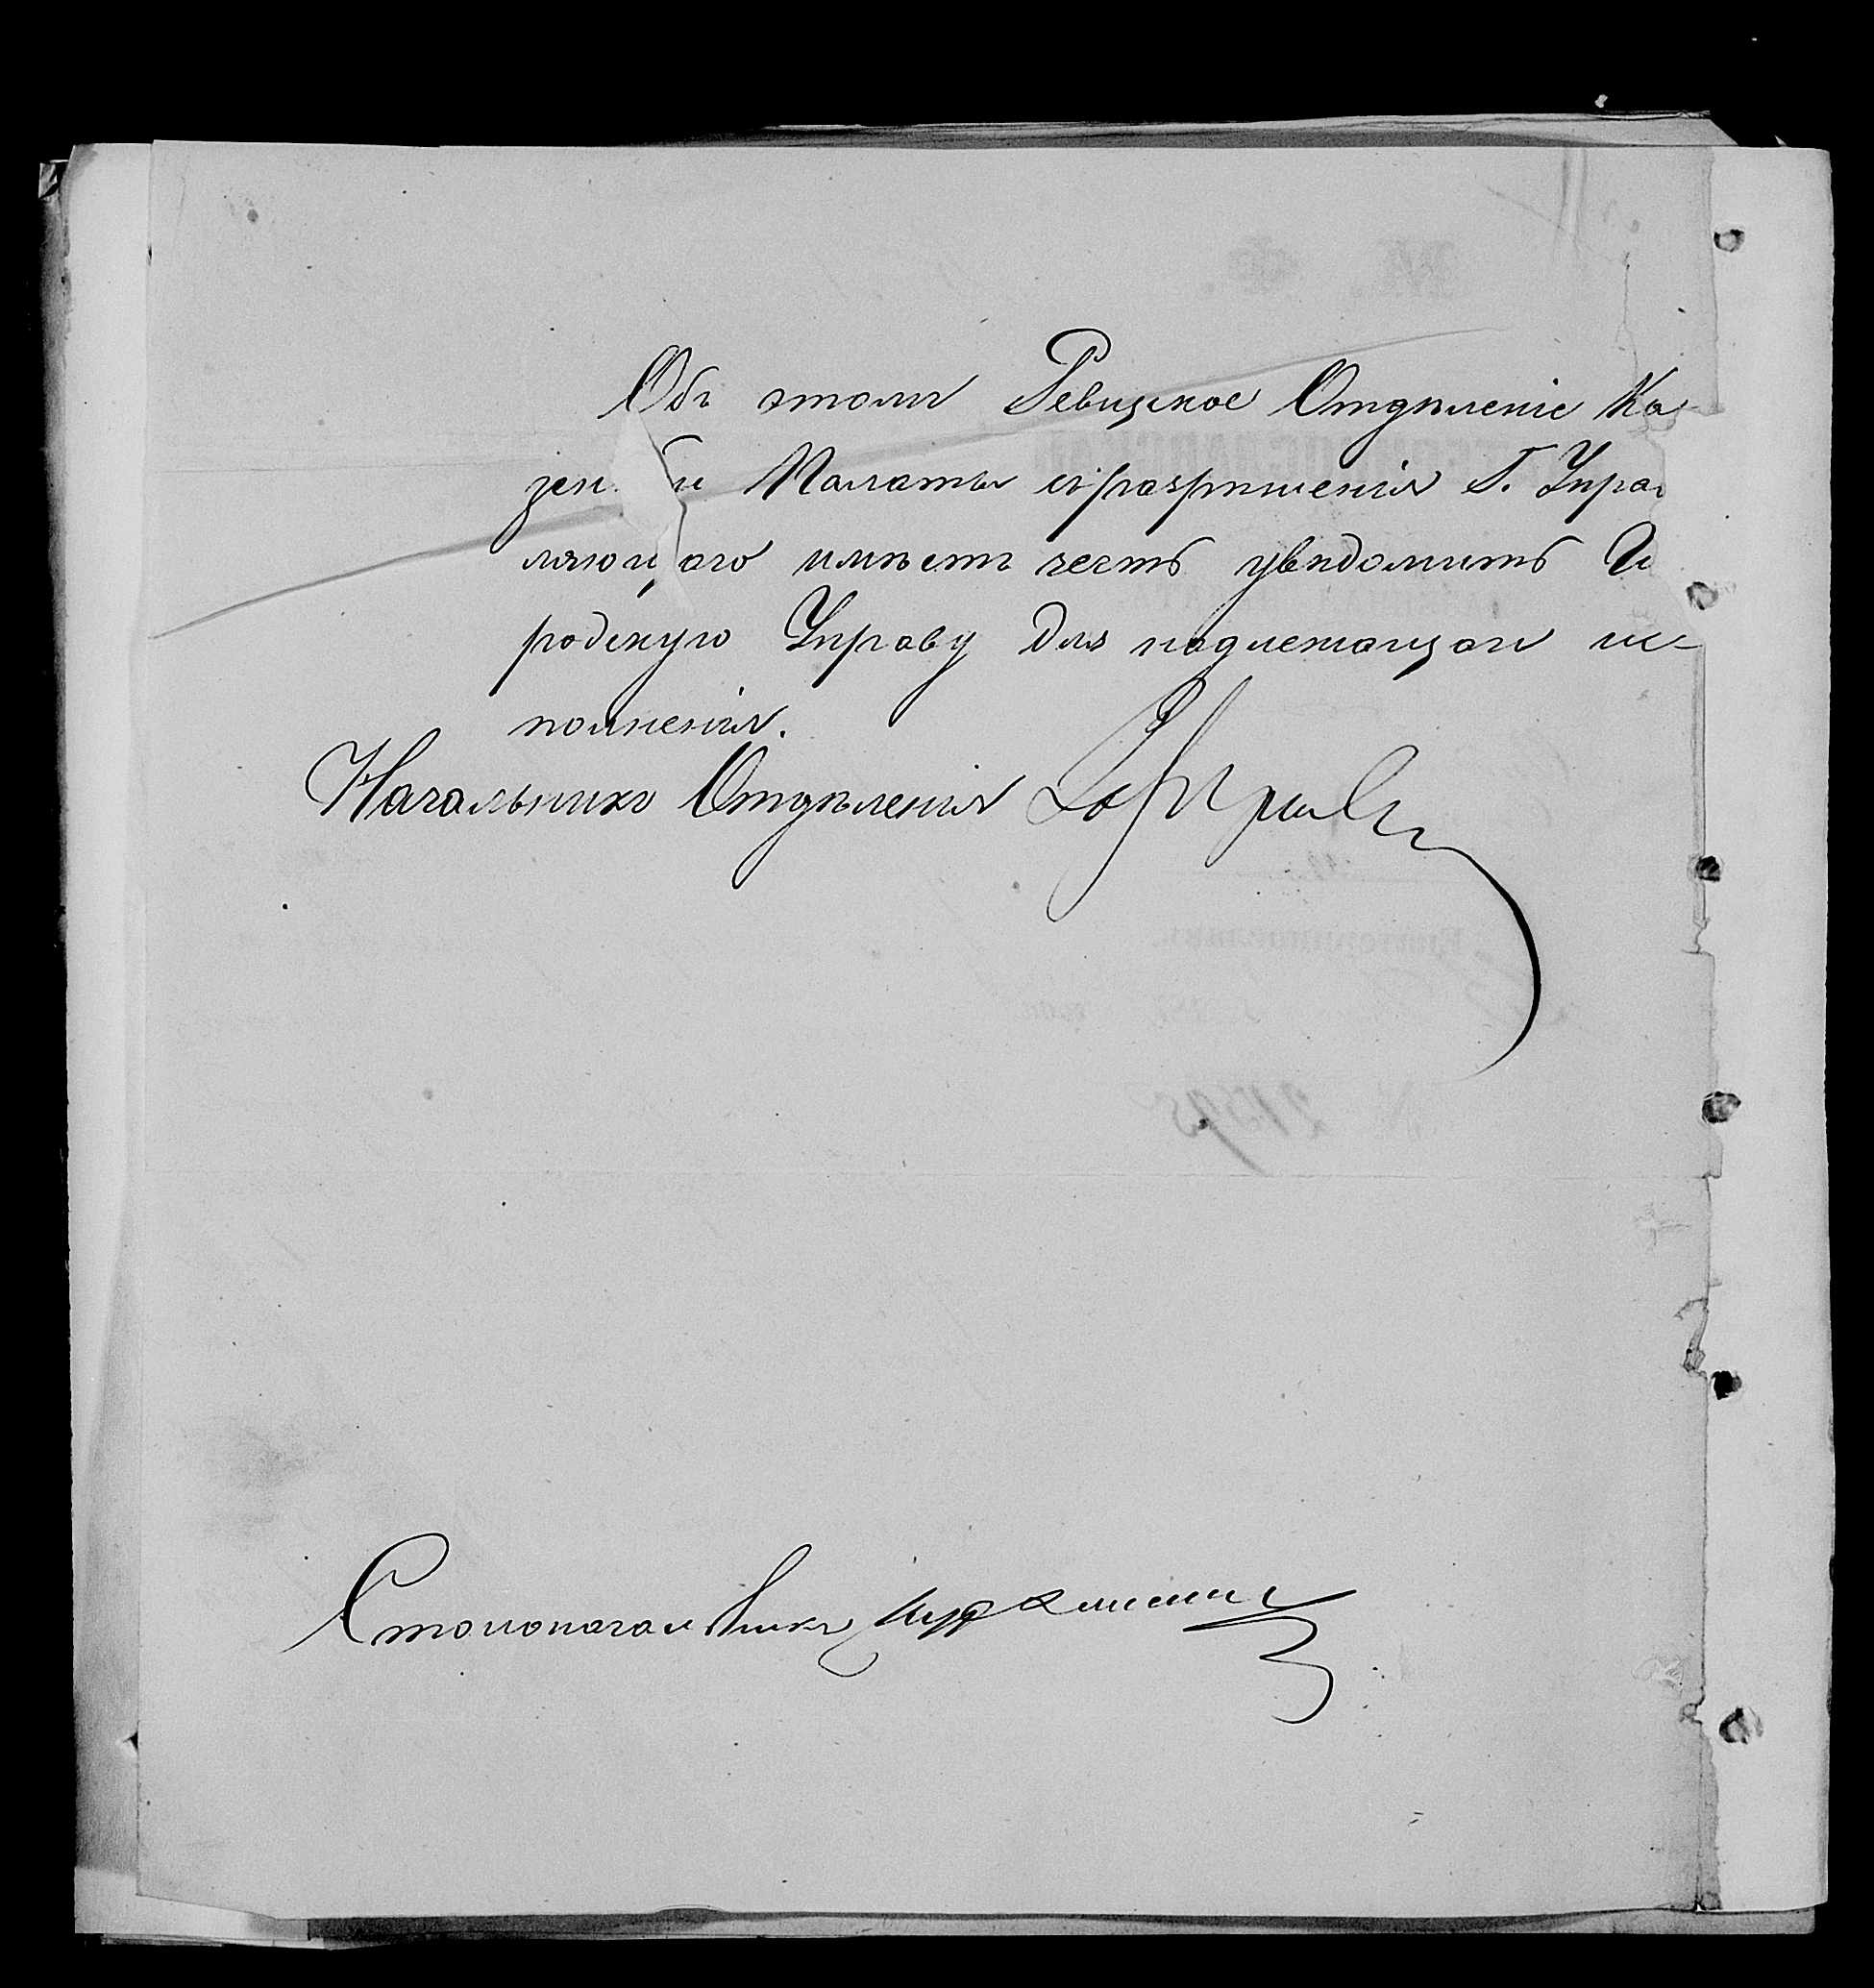 Объ этомъ Ревизское Отдѣленіе Ка-
зен й Палаты съ разрѣшенія Г. Упра
ляющаго имѣетъ честь увѣдомить Го
родскую Управу для надлежащаго ис-
полненія.
Начальникъ Отдѣленія
Столоначальникъ